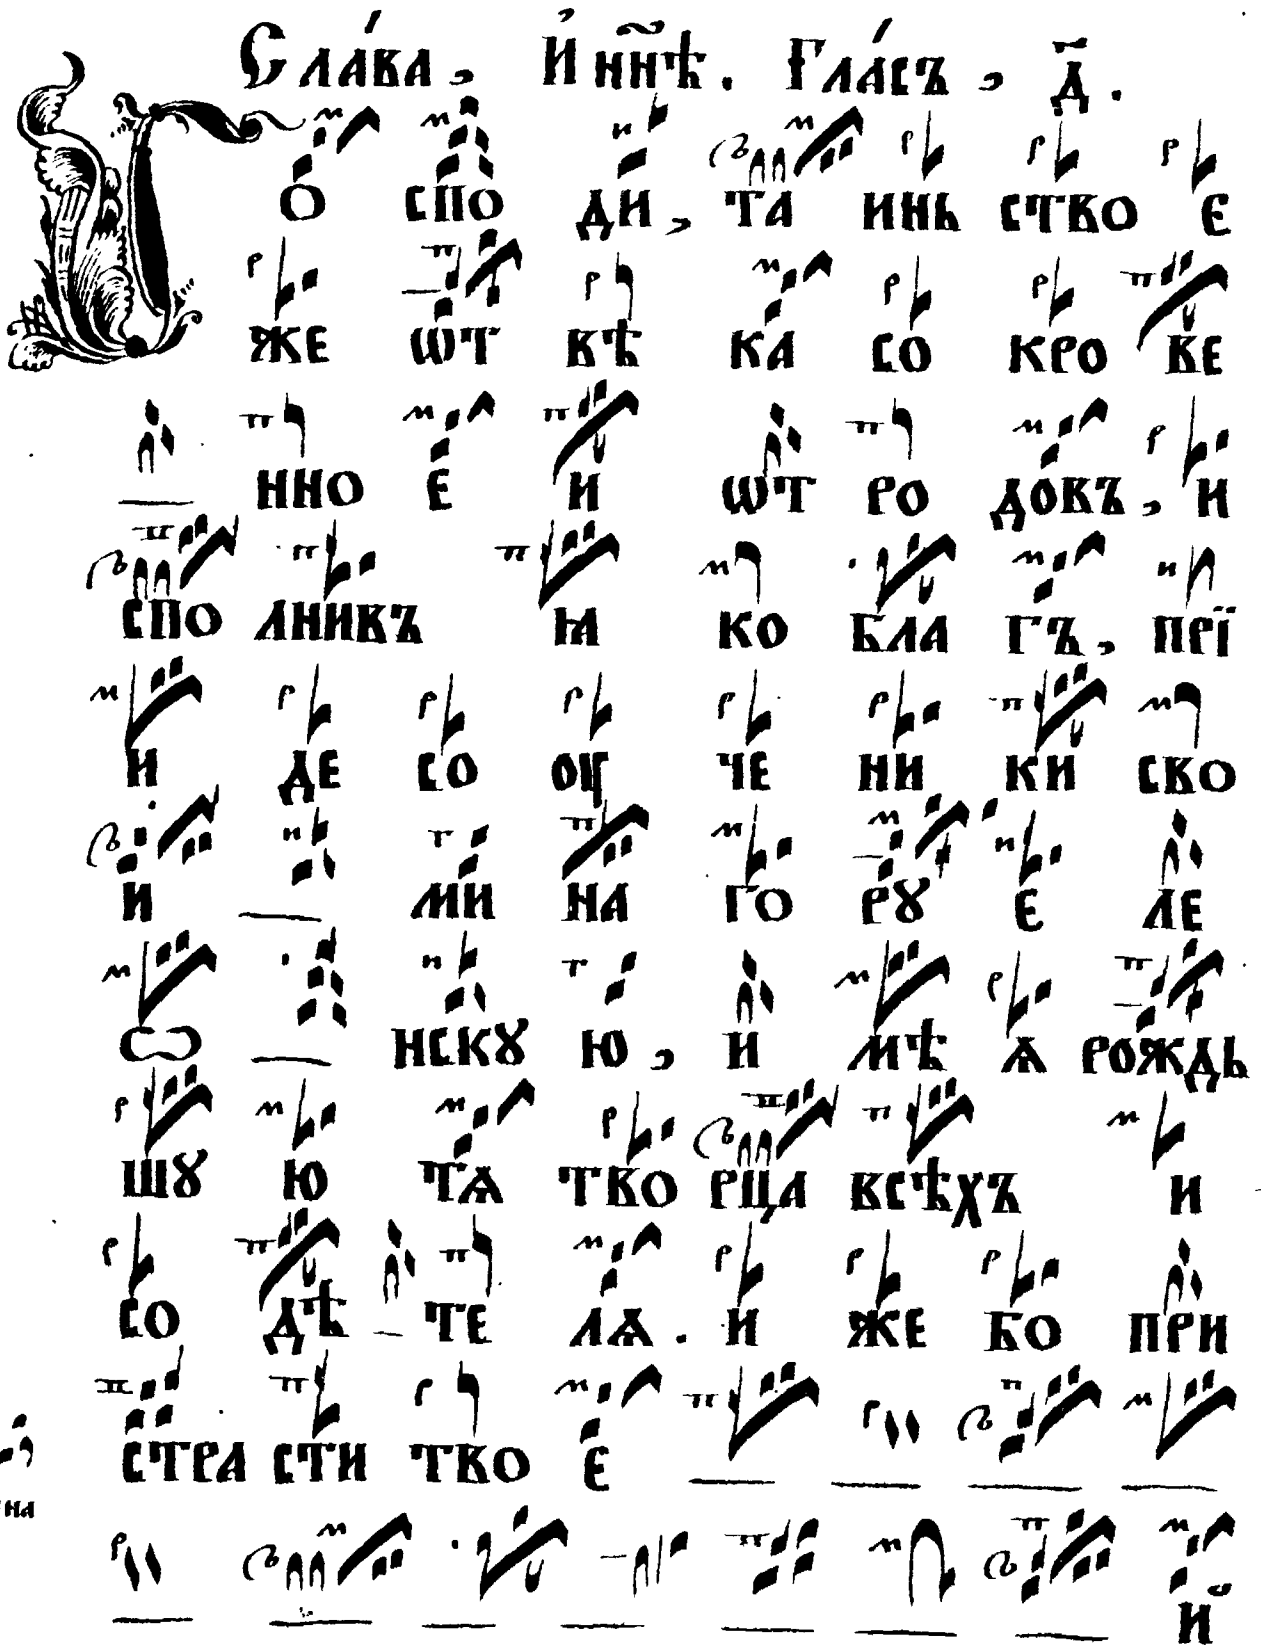 Сла́ва, И҆ нн҃ѣ. Гла́съ, д҃.
Го спо ди, та инь ство е
же ѿт вѣ ка со кро ве
нно е и ѿт ро довъ, и
спо лнивъ ꙗ ко бла гъ, прї
и де со оу че ни ки сво
и ми на го рꙋ е ле
ѡ нскꙋ ю, и мѣ ѧ рождь
шꙋ ю тѧ тво рца всѣхъ и
со дѣ те лѧ. и же бо при
стра сти тво е
на
й